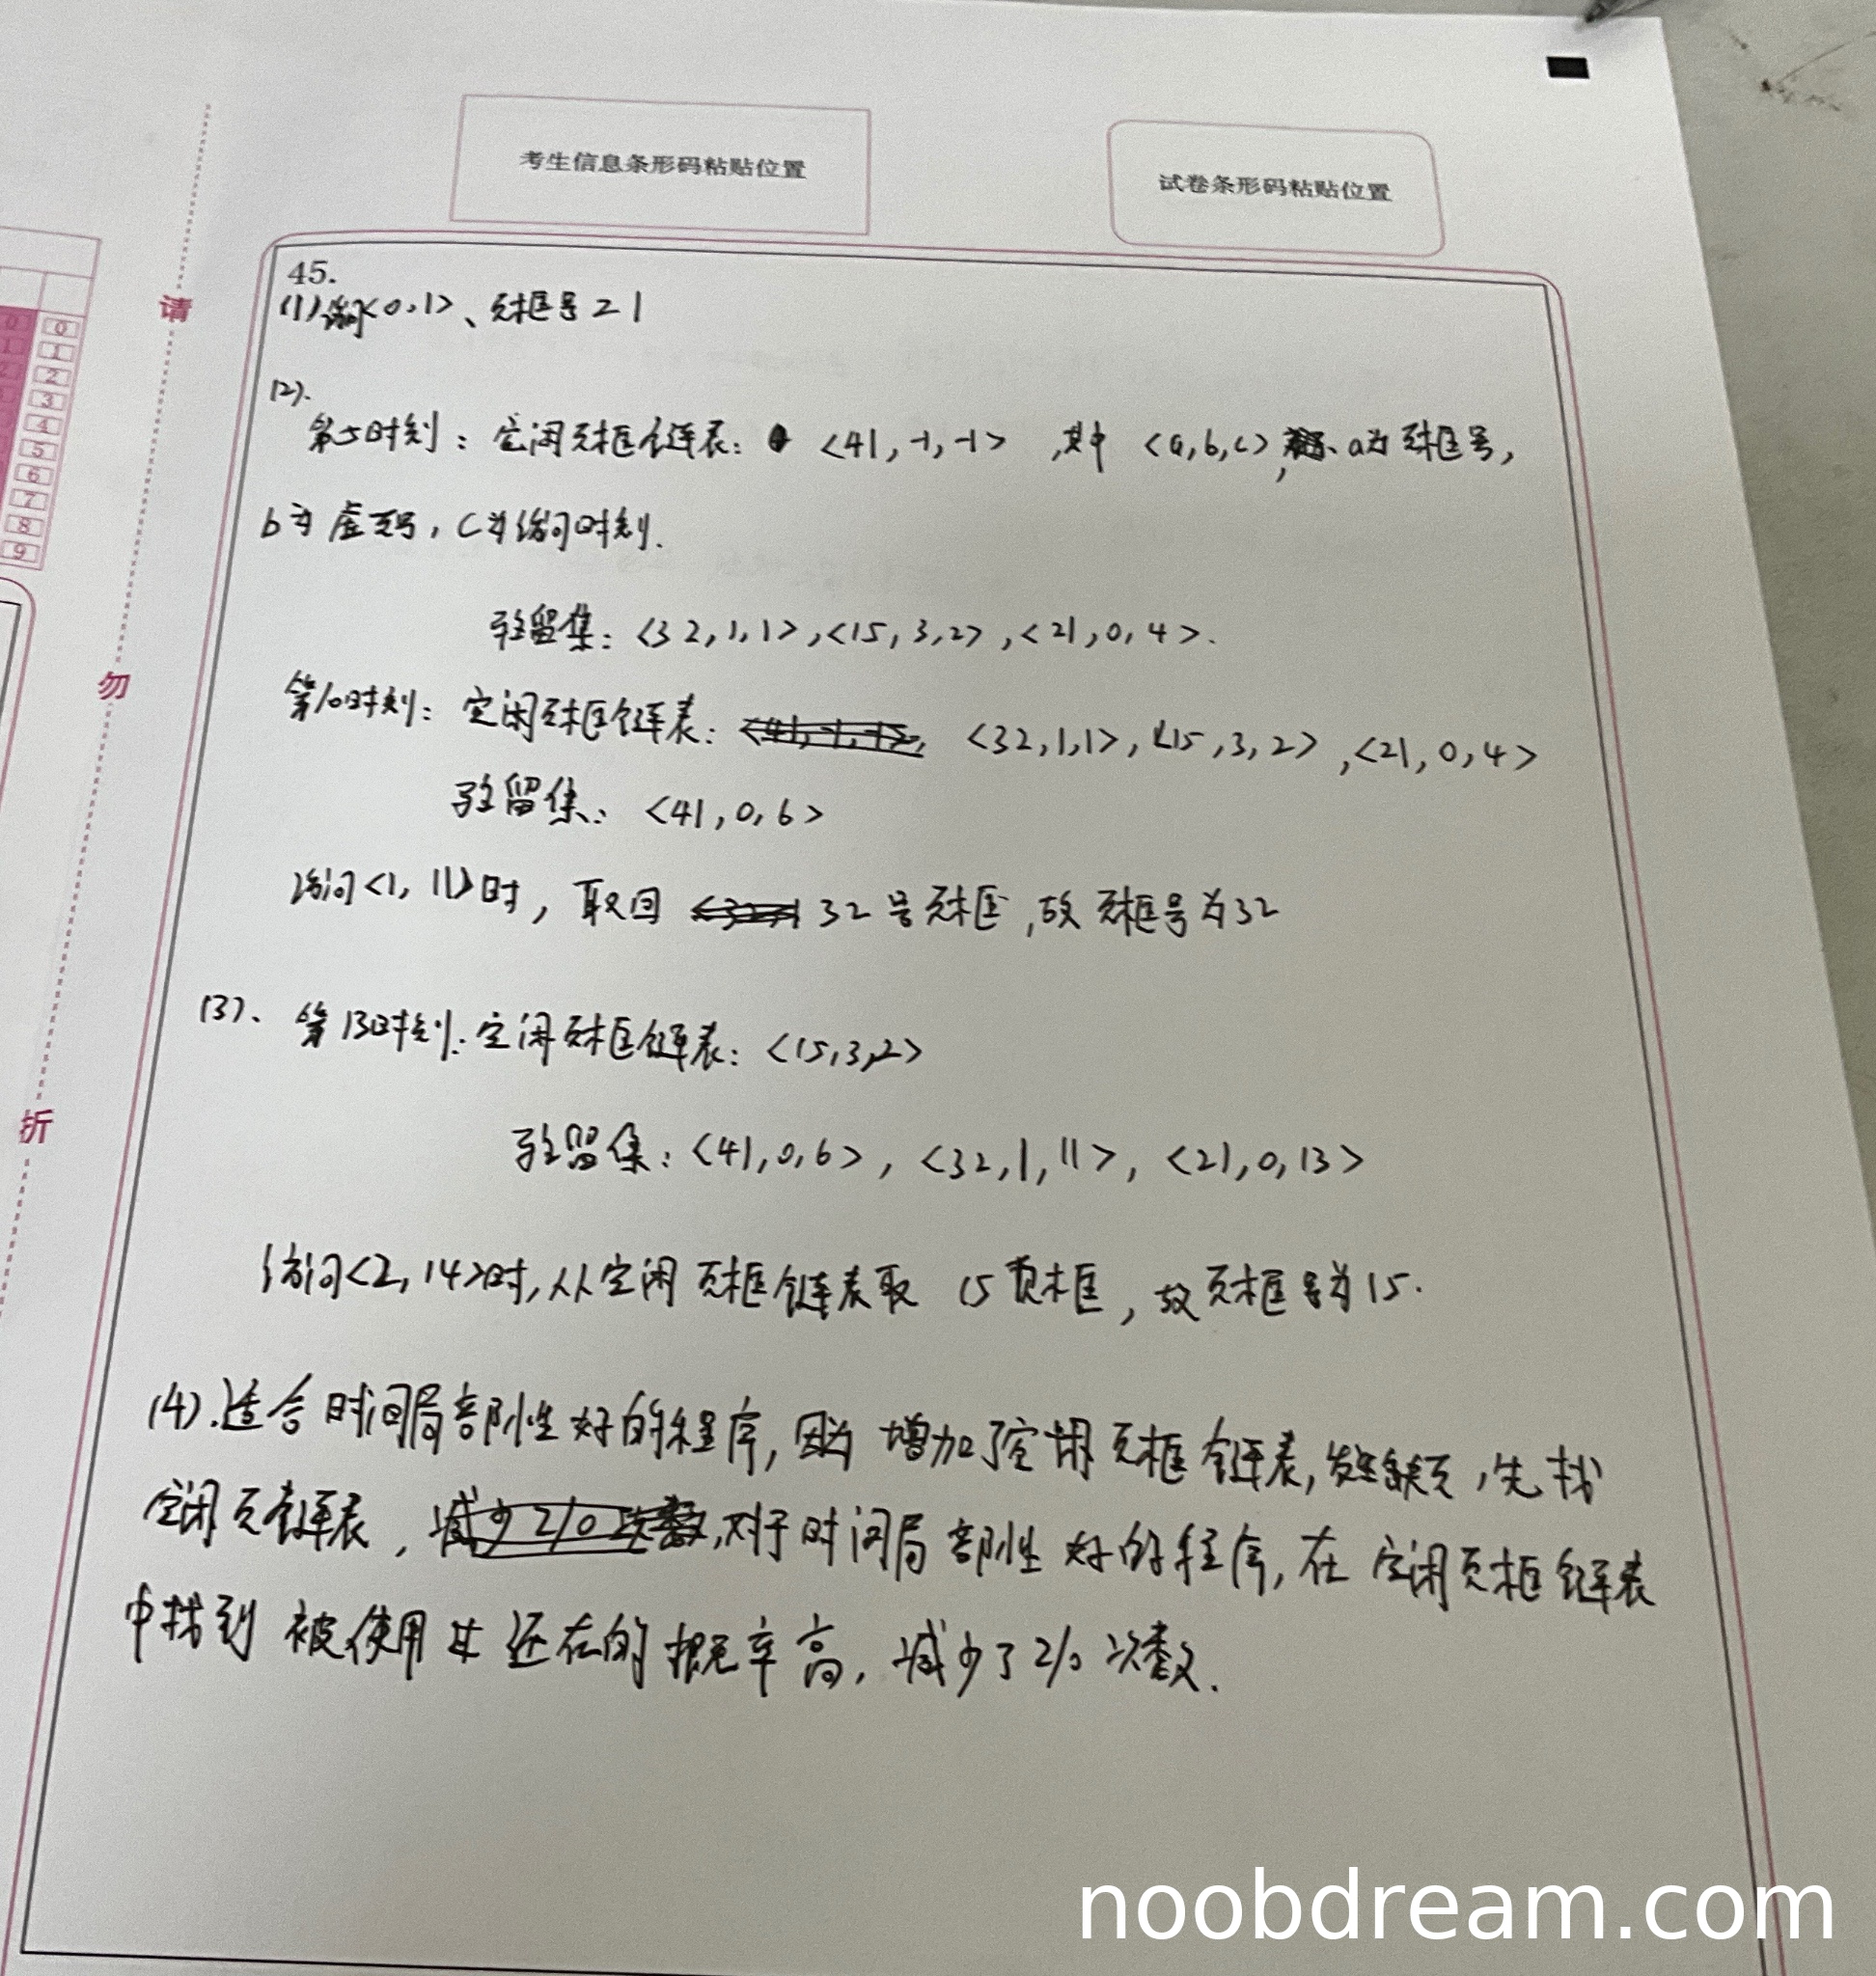 考生信息条形码粘贴位置
试卷条形码粘贴位置
请
勿
折
0
0
1
1
2
2
3
4
5
6
7
8
9
45.
(1)访问<0,1>、页框号21
(2).
第5时刻:空闲页框链表: <41,-1,-1> ,其中 <a,b,c>, a为页框号,
b为虚页号,c为访问时刻.
驻留集:<32,1,1>,<15,3,2>,<21,0,4>.
第10时刻:空闲页框链表: <41,-1,-1>, <32,1,1>,<15,3,2>,<21,0,4>
驻留集: <41,0,6>
访问<1,11>时,取回 32号页框,故页框号为32
(3)、第13时刻:空闲页框链表:<15,3,2>
驻留集:<41,0,6>, <32,1,11>, <21,0,13>
访问<2,14>时,从空闲页框链表取 15页框,故页框号为15.
(4).适合时间局部性好的程序,因为 增加了空闲页框链表,发生缺页,先找
空闲页链表, 减少I/O次数,对于时间局部性好的程序,在空闲页框链表
中找到 被使用且还在的概率高,减少了I/O次数.
noobdream.com